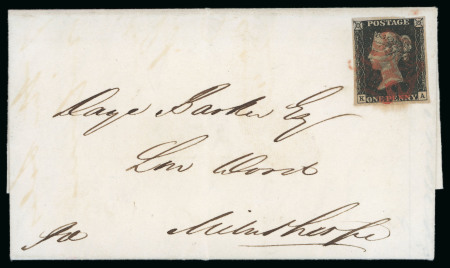 POSTAGE
ONE PENNY
K A
Daye Barker Esq
Low Wood
Milnthorpe